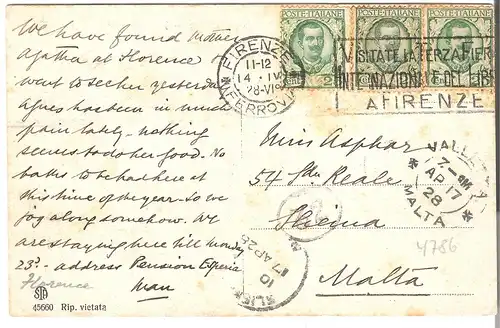 We have found
Agatha at Florence
went to see her yesterday
Agnes has been in much
pain lately - nothing
seems to do her good. No
baths to be had here at
this time of the year - so we
jog along somehow. We
are staying here till Monday
23rd - address Pension Esperia
Florence
STA
45660 Rip. vietata
POSTE ITALIANE
POSTE ITALIANE
POSTE ITALIANE
FIRENZE
11-12
14 · IV
28 · VI
FERROVIA
VISITATE LA TERZA FIERA
INTERNAZIONALE DEL
A FIRENZE
Miss Asphar
54 Sda Reale
Sliema
Malta
VALLETTA
AP 17
28
MALTA
10
17 AP 28
4786